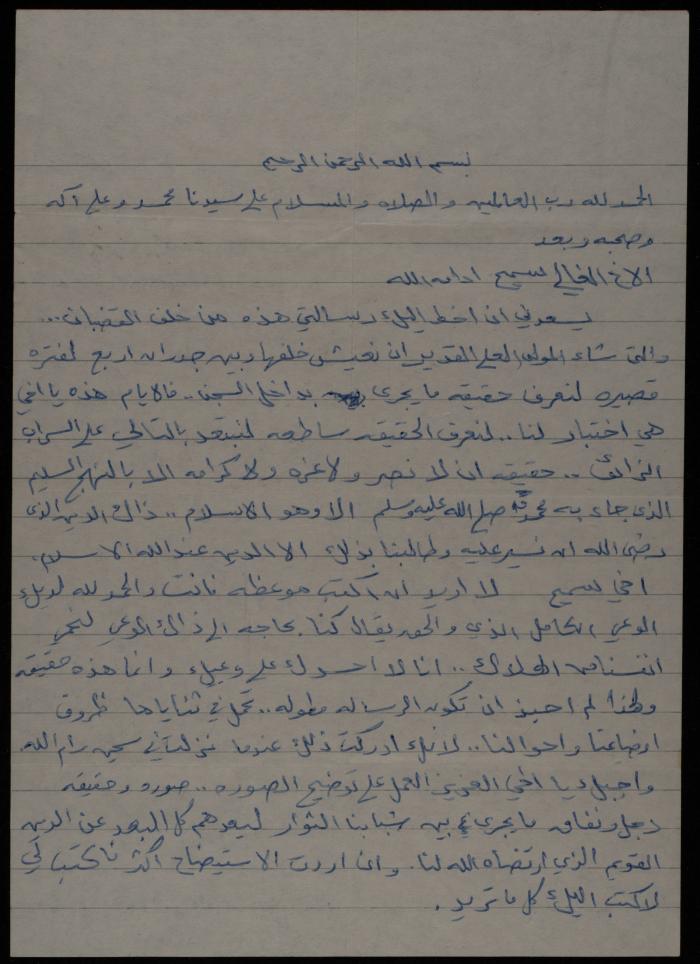 بسم الله الرحمن الرحيم
الحمد لله رب العالمين والصلاه والسلام على سيدنا محمد وعلى آله
وصحبه وبعد
الاخ الغالي سميح ادامه الله
يسعدني ان اخط اليك رسالتي هذه من خلف القضبان...
والتي شاء المولى العلي القدير ان نعيش خلفها وبين جدران اربع لفتره
قصيره لنعرف حقيقه ما يجري بداخل السجن.. فالايام هذه يا اخي
هي اختبار لنا.. لنعرف الحقيقه ساطعه لنبتعد بالتالي على السراب
الزائف.. حقيقه ان لا نصر ولا عزه ولا كرامه الا بالنهج السليم
الذي جاء به محمد صلى الله عليه وسلم الا وهو الاسلام.. ذاك الدين الذي
رضى الله ان نسير عليه وطالبنا بذلك الا الدين عند الله الاسلام.
اخي سميح لا اريد ان اكتب موعظه فانت والحمد لله لديك
الوعي الكامل الذي والحق يقال كنا بحاجه الى ذاك الوعي لنحمي
انفسنا من الهلاك.. انا لا احسدك على وعيك وانما هذه حقيقه
ولهذا لم احبذ ان تكون الرساله مطوله.. تحمل في ثناياها ظروف
اوضاعنا واحوالنا.. لانك ادركت ذلك عندما نزلت في سجن رام الله
واجبك يا اخي العزيز العمل على توضيح الصوره.. صوره وحقيقه
دجل ونفاق ما يجري بين شبابنا الثوار لبعدهم كل البعد عن الدين
القويم الذي ارتضاه الله لنا. وان اردت الاستيضاح اكثر فاكتب لي
لاكتب اليك كل ما تريد.